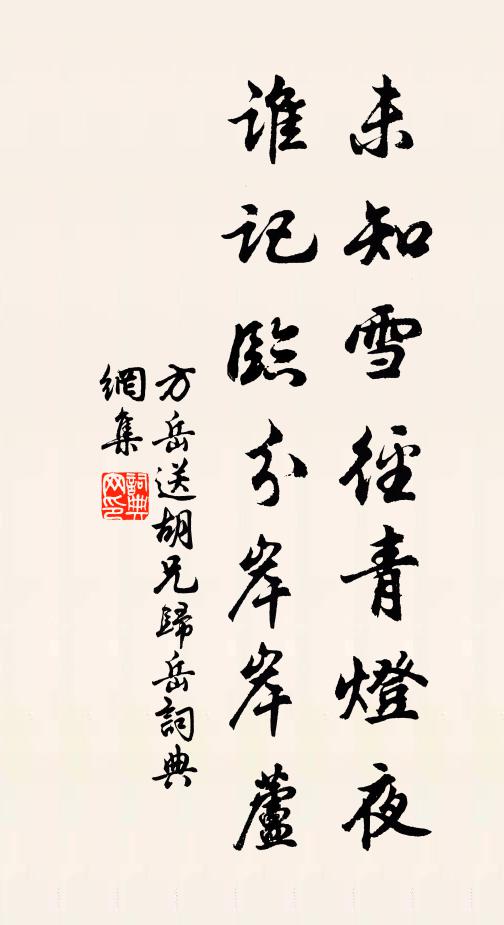 未知雪徑青燈夜
誰記臨分岸岸蘆
方岳送胡兄歸岳詞典
網集
詞典
网印